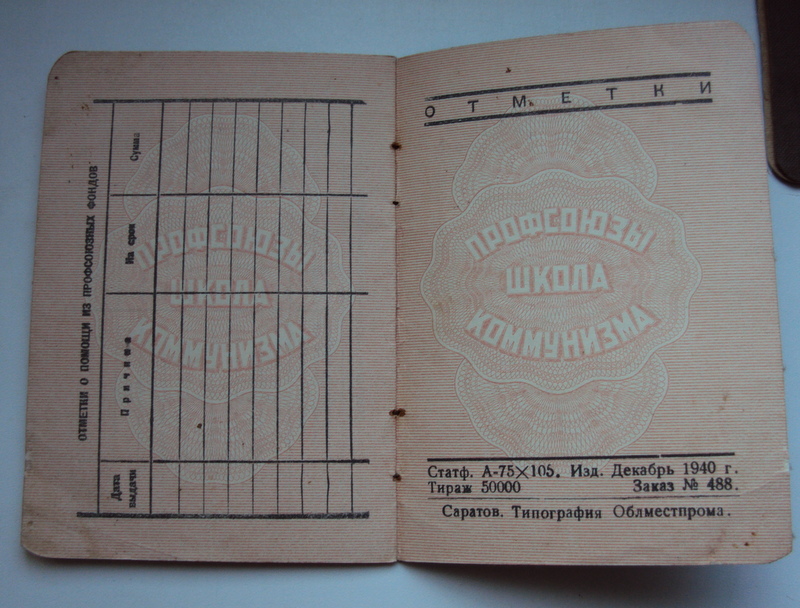 ОТМЕТКИ О ПОМОЩИ ИЗ ПРОФСОЮЗНЫХ ФОНДОВ
Дата выдачи
Причина
На срок
Сумма
ПРОФСОЮЗЫ
ШКОЛА
КОММУНИЗМА
ОТМЕТКИ
ПРОФСОЮЗЫ
ШКОЛА
КОММУНИЗМА
Статф. А-75×105. Изд. Декабрь 1940 г.
Тираж 50000 Заказ № 488.
Саратов. Типография Облместпрома.